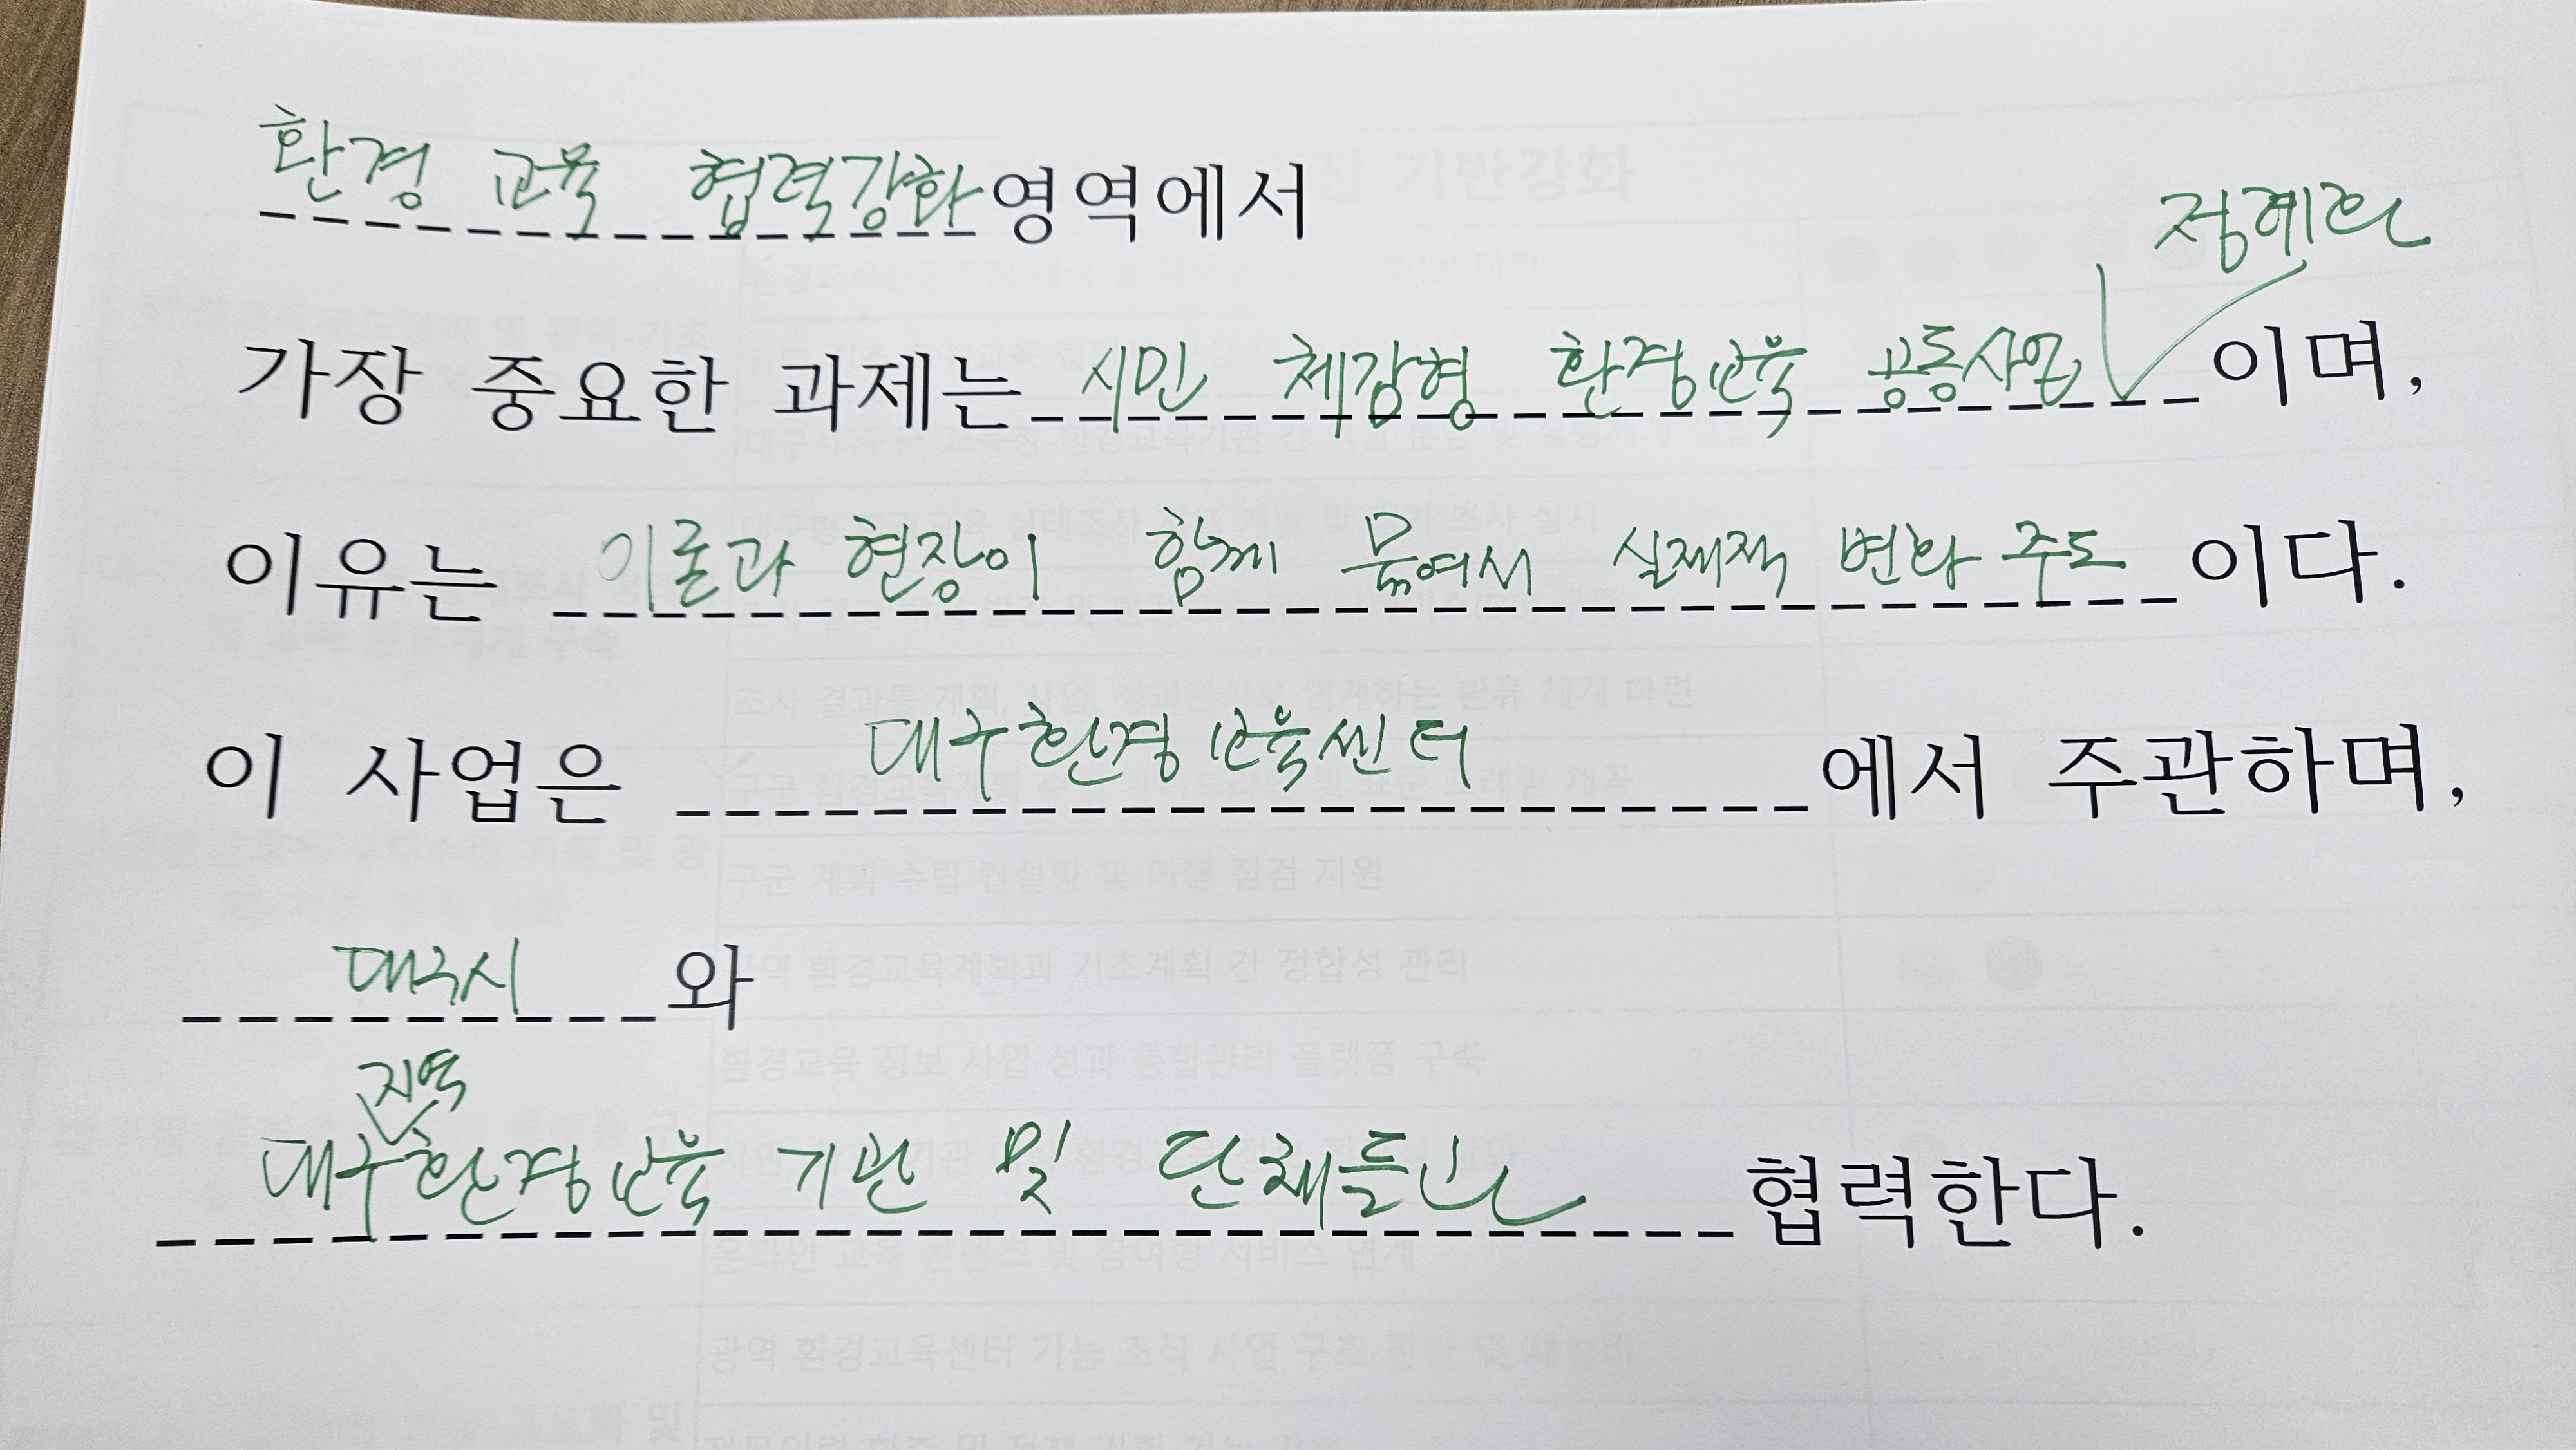 환경 교육 협력강화 영역에서
정례화
가장 중요한 과제는 시민 체감형 환경교육 공동사업 이며,
이유는 이론과 현장이 함께 묶여서 실제적 변화 주도 이다.
이 사업은 대구환경교육센터 에서 주관하며,
대구시 와
지역
대구환경교육 기관 및 단체들과 협력한다.